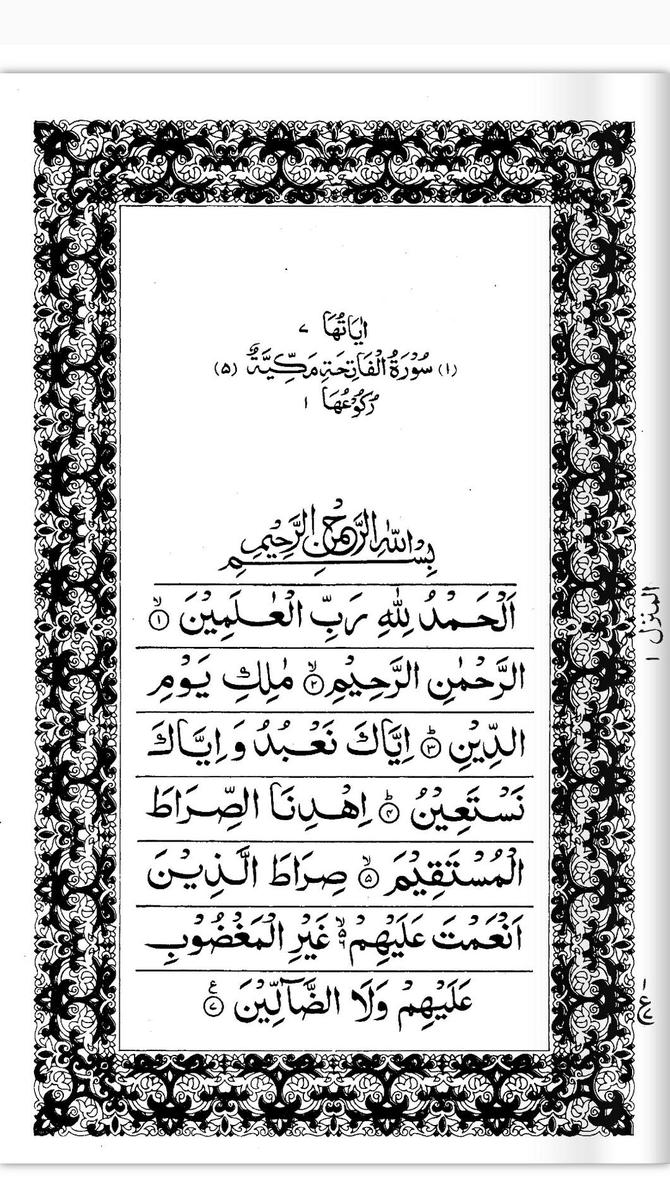 اٰيَاتُهَا ٧
(١) سُوْرَةُ الْفَاتِحَةِ مَكِّيَّةٌ (٥)
رُكُوْعُهَا ١
بِسْمِ اللّٰهِ الرَّحْمٰنِ الرَّحِيْمِ
اَلْحَمْدُ لِلّٰهِ رَبِّ الْعٰلَمِيْنَ ۙ﴿١﴾
الرَّحْمٰنِ الرَّحِيْمِ ۙ﴿٢﴾ مٰلِكِ يَوْمِ
الدِّيْنِ ؕ﴿٣﴾ اِيَّاكَ نَعْبُدُ وَ اِيَّاكَ
نَسْتَعِيْنُ ؕ﴿۴﴾ اِهْدِنَا الصِّرَاطَ
الْمُسْتَقِيْمَ ۙ﴿۵﴾ صِرَاطَ الَّذِيْنَ
اَنْعَمْتَ عَلَيْهِمْ ۙ۬ غَيْرِ الْمَغْضُوْبِ
عَلَيْهِمْ وَلَا الضَّآلِّيْنَ ﴿٧﴾ ع
المنزل ١